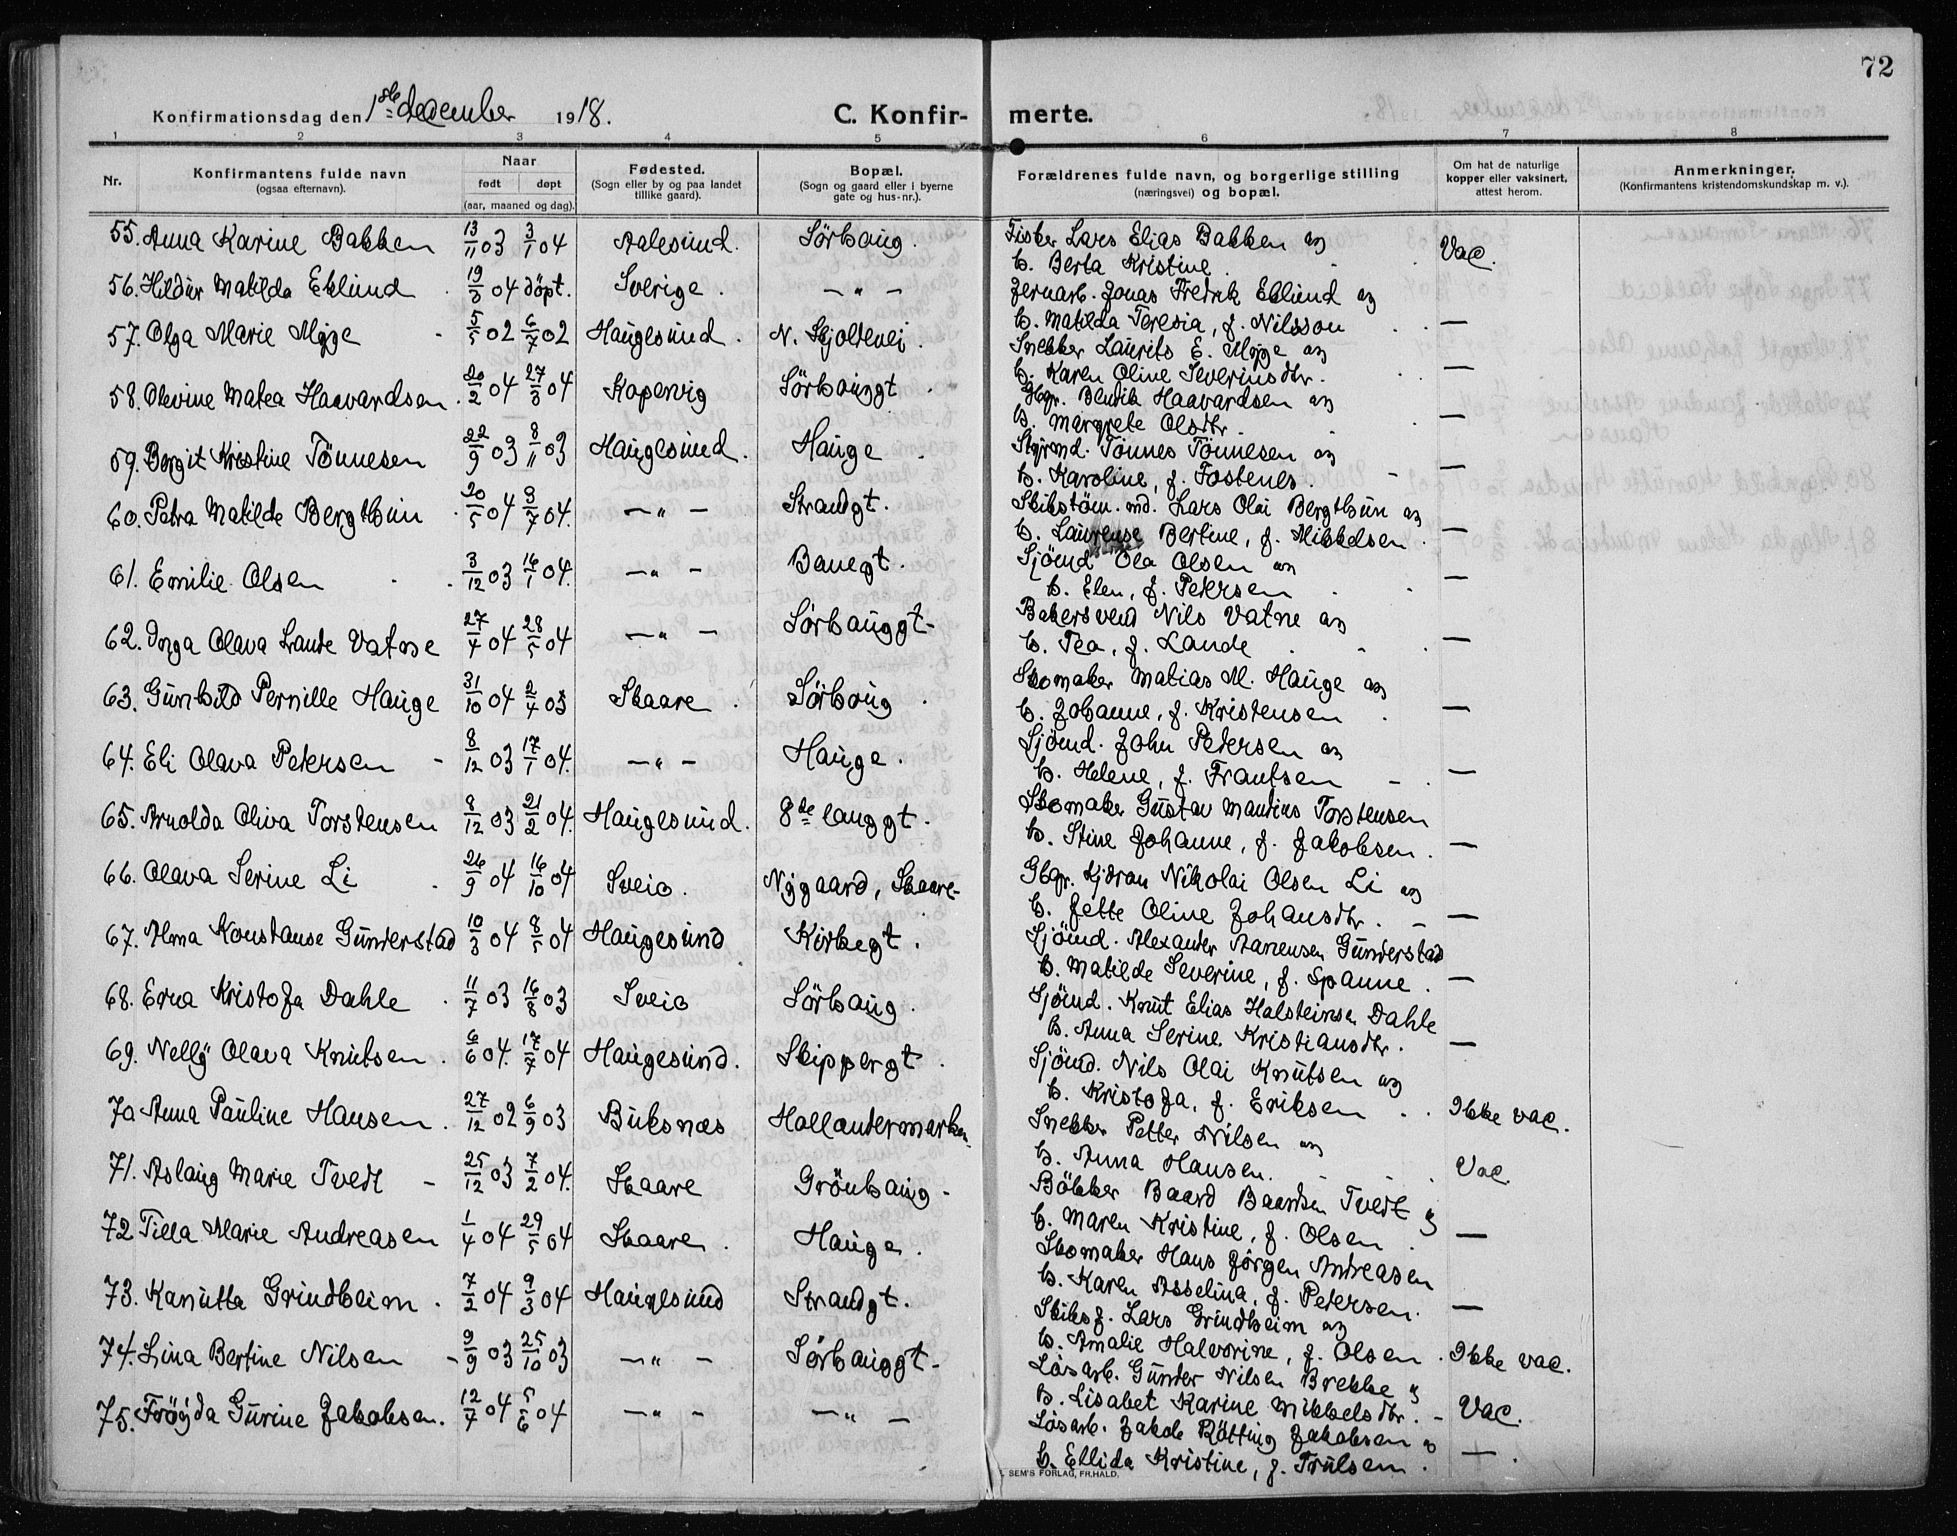 72
Konfirmationsdag den 1ste december 1918.
C. Konfirmerte.
1 2 3 4 5 6 7 8
Nr.
Konfirmantens fulde navn (ogsaa efternavn).
Naar født døpt (aar, maaned og dag).
Fødested. (Sogn eller by og paa landet tillike gaard).
Bopæl. (Sogn og gaard eller i byerne gate og hus-nr.).
Forældrenes fulde navn, og borgerlige stilling (næringsvei) og bopæl.
Om hat de naturlige kopper eller vaksinert, attest herom.
Anmerkninger. (Konfirmantens kristendomskundskap m. v.).
55. Anna Karine Bakken 13/11 03 3/1 04 Aalesund. Sörhaug. Fisker Lars Elias Bakken og
h. Berta Kristine. Vac.
56. Hildur Matilda Eklund 19/3 04 döpt. Sverige. — " — Jernarb. Jonas Fredrik Eklund og
h. Matilda Teresia, f. Nilsson —
57. Olga Marie Myge 5/5 02 6/7 02 Haugesund. N. Skjoldvei. Snekker Laurits E. Myge og
h. Karen Oline Severinsdtr. —
58. Olevine Matea Haavardsen. 20/2 04 27/3 04 Kopervig Sörhauggt. Gbgr. Bendik Haavardsen og
h. Margrete Olsdtr. —
59. Borgit Kristine Tönnesen 22/9 03 8/11 03 Haugesund. Hauge. Styrmd. Tönnes Tönnesen og
h. Karoline, f. Fostenes —
60. Petra Matilde Bergthun 20/5 04 3/7 04. — " — Strandgt. Skibstöm.md. Lars Olai Bergthun og
h. Laurense Bertine, f. Mikkelsen. —
61. Emilie Olsen 3/12 03 16/1 04. — " — Banegt. Sjömd Ola Olsen og
h. Elen, f. Petersen. —
62. Inga Olava Lande Vatne 27/4 04 28/5 04 — " — Sörhauggt. Bakersvend Nils Vatne og
h. Tea, f. Lande —
63. Gunhild Pernille Hauge 31/10 04 2/4 03 Skaare. Sörhaug. Skomaker Matias M. Hauge og
h. Johanne, f. Kristensen. —
64. Eli Olava Petersen 8/12 03 17/1 04. — " — Hauge. Sjömd. John Petersen og
h. Helene, f. Frantsen —
65. Arnolda Oliva Torstensen 8/12 03 21/2 04. Haugesund. 8de langgt. Skomaker Gustav Mandius Torstensen
h. Stine Johanne, f. Jakobsen. —
66. Olava Serine Li 26/9 04 16/10 04 Sveio. Nygaard, Skaare Gbgr. Sjöran Nikolai Olsen Li og
h. Jette Oline Johansdtr. —
67. Alma Konstanse Gunderstad 10/3 04 8/5 04 Haugesund Kirkegt. Sjömd. Alexander Aanensen Gunderstad
h. Matilde Severine, f. Spanne. —
68. Erna Kristofa Dahle 11/7 03 16/8 03 Sveio Sörhaug. Sjömd. Knut Elias Halsteinsen Dahle
h. Anna Serine Kristiansdtr. —
69. Nelly Olava Knutsen. 6/6 04. 17/7 04 Haugesund. Skippergt. Sjömd. Nils Olai Knutsen og
h. Kristofa, f. Eriksen. Ikke vac.
70 Anna Pauline Hansen. 27/12 02 6/9 03 Buksnæs Hollendermarken. Snekker Petter Nilsen og
h. Anna Hansen. Vac.
71. Aslaug Marie Tvedt 25/12 03 7/2 04. Skaare Grönhaug. Bökker Baard Baardsen Tvedt og
h. Maren Kristine, f. Olsen —
72 Tilla Marie Andreasen 1/4 04 29/5 04 Skaare. Hauge. Skomaker Hans Jörgen Andreasen
h. Karen Asselina, f. Petersen. —
73. Kanutta Grindheim. 7/2 04 9/3 04 Haugesund Strandgt. Skibsf. Lars Grindheim og
h. Amalie Halvorine, f. Olsen. Ikke vac.
74. Lina Bertine Nilsen 9/9 03 25/10 03 — " — Sörhauggt. Lösarb. Gunder Nilsen Brekke og
h. Lisabet Karine Mikkelsdtr. Vac.
75. Fröyda Gurine Jakobsen. 12/4 04 5/6 04 — " — — " — Lösarb. Jakob Rötting Jakobsen og
h. Ellida Kristine, f. Trulsen. —
SEM'S FORLAG, FR.HALD.